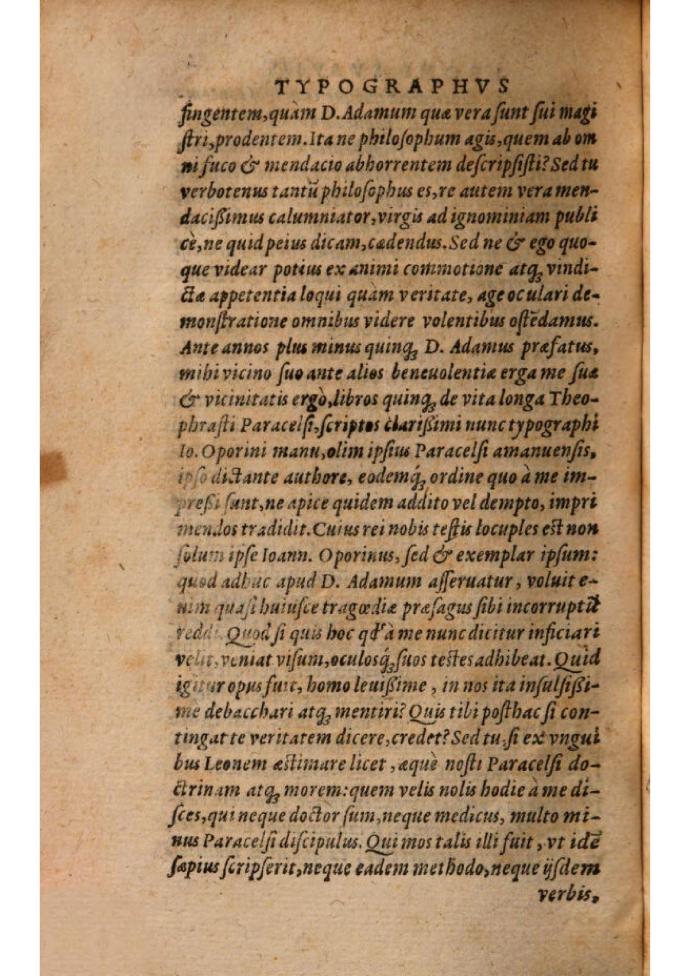 TYPOGRAPHVS
fingentem, quàm D. Adamum quæ vera ſunt ſui magi
ſtri, prodentem. Ita ne philoſophum agis, quem ab om
ni fuco & mendacio abhorrentem deſcripſiſti? Sed tu
verbotenus tantũ philoſophus es, re autem vera men-
dacißimus calumniator, virgis ad ignominiam publi
cè, ne quid peius dicam, cædendus. Sed ne & ego quo-
que videar potius ex animi commotione atq; vindi-
ctæ appetentia loqui quàm veritate, age oculari de-
monſtratione omnibus videre volentibus oſtēdamus.
Ante annos plus minus quinq; D. Adamus præfatus,
mihi vicino ſuo ante alios beneuolentiæ erga me ſuæ
& vicinitatis ergò, libros quinq; de vita longa Theo-
phraſti Paracelſi, ſcriptos clarißimi nunc typographi
Io. Oporini manu, olim ipſius Paracelſi amanuenſis,
ipſo dictante authore, eodemq́; ordine quo à me im-
preßi ſunt, ne apice quidem addito vel dempto, impri
mendos tradidit. Cuius rei nobis teſtis locuples eſt non
ſolum ipſe Ioann. Oporinus, ſed & exemplar ipſum:
quod adhuc apud D. Adamum aſſeruatur, voluit e-
nim quaſi huiuſce tragœdiæ præſagus ſibi incorruptũ
reddi. Quod ſi quis hoc qd' à me nunc dicitur inficiari
velit, veniat viſum, oculosq́; ſuos teſtes adhibeat. Quid
igitur opus fuit, homo leuißime, in nos ita inſulſißi-
me debacchari atq; mentiri? Quis tibi poſthac ſi con-
tingat te veritatem dicere, credet? Sed tu, ſi ex vngui
bus Leonem æſtimare licet, æquè noſti Paracelſi do-
ctrinam atq; morem: quem velis nolis hodie à me di-
ſces, qui neque doctor ſum, neque medicus, multo mi-
nus Paracelſi diſcipulus. Qui mos talis illi fuit, vt idē
ſæpius ſcripſerit, neque eadem methodo, neque ijſdem
verbis,